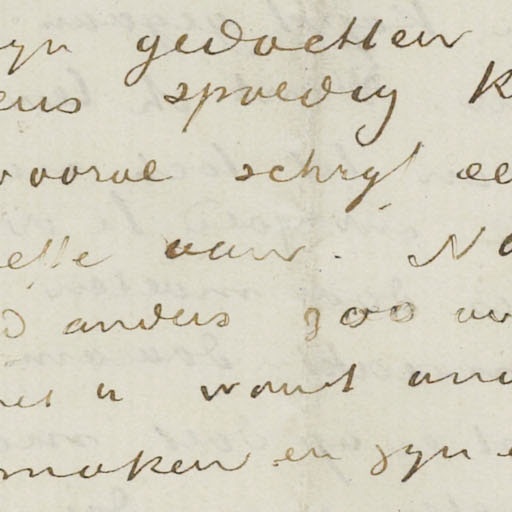 yn gedachten
ens spoedig k
vooral schryf ee
elle aan. N
d anders zoo uw
met u want an
maken en zyn